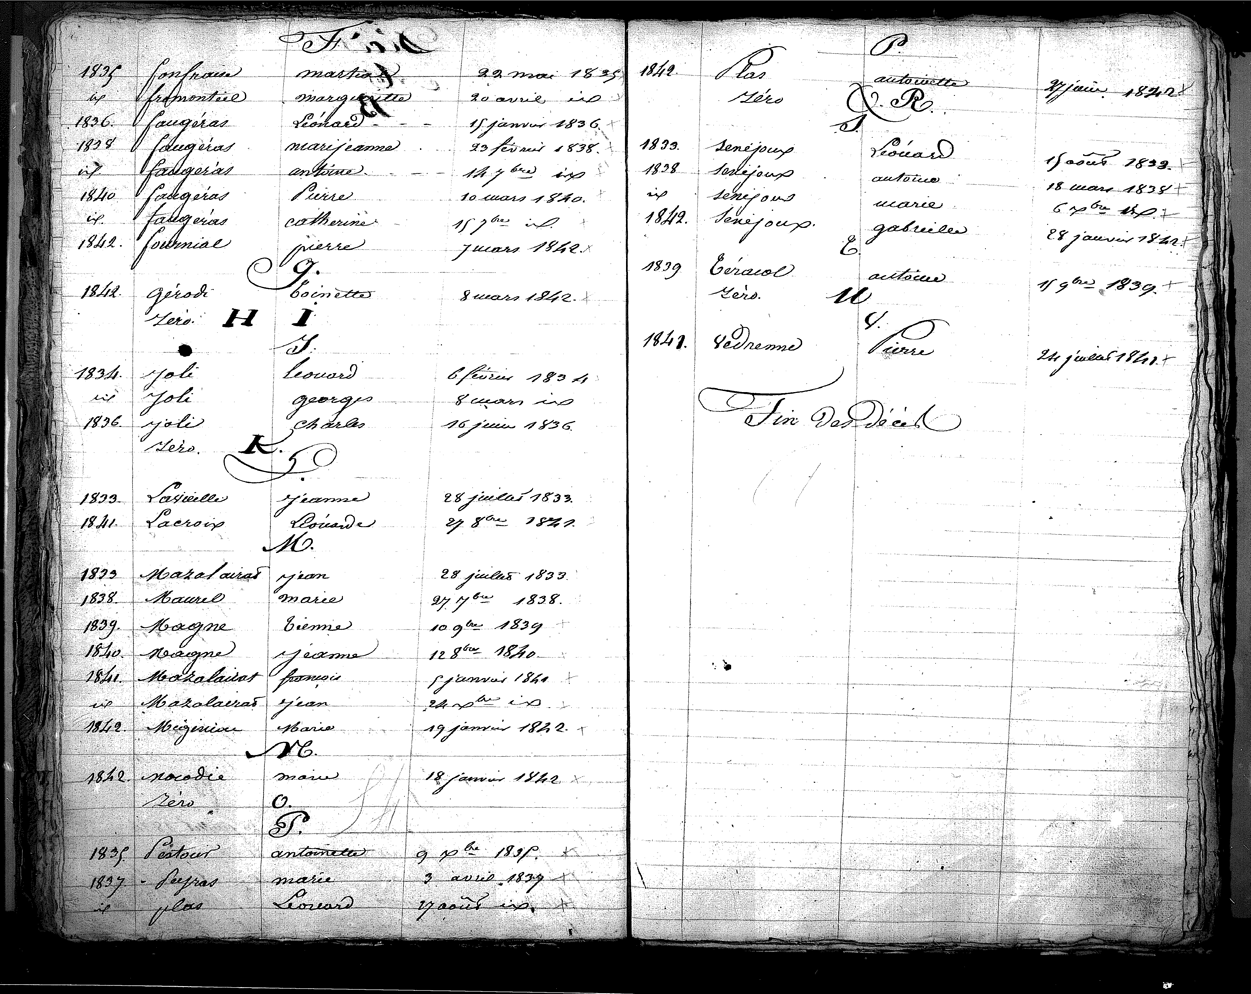 F.
1835 fonfraide martial 22 mai 1835
ix fromonteil marguerite 20 avril ix
1836. faugéras Léonard 15 janvier 1836.
1838 faugéras marijeanne 23 février 1838.
ix faugéras antoine 14 7bre ix
1840 faugéras Pierre 10 mars 1840.
ix faugéras catherine 15 7bre ix
1842. fournial pierre 7 mars 1842.
G.
1842. gérodi toinette 8 mars 1842.
Zéro. H I
J.
1834. joli leonard 6 février 1834
ix joli georges 8 mars ix
1836 joli charles 16 juin 1836.
Zéro. K.
L.
1833 Laxielle jeanne 28 juillet 1833.
1841. Lacroix Léonarde 27 8bre 1841.
M.
1833 Mazalairat jean 28 juillet 1833
1838. Maurel marie 27 7bre 1838.
1839. Magne Etienne 10 9bre 1839
1840. Magne jeanne 12 8bre 1840.
1841. Mazalairat françois 5 janvier 1841
ix Mazalairat jean 24 xbre ix
1842. Marie 19 janvier 1842.
N.
1842. marie 18 janvier 1842
Zéro O.
P.
1835 Pestour antoinette 9 xbre 1835.
1837 Peyras marie 3 avril 1837
ix plas Léonard 27 août ix.
P.
1842. Plas antoinette 27 juin 1842
Zéro Q. R.
S.
1833. senéjoux Léonard 15 août 1833.
1838 senéjoux antoine 18 mars 1838
ix senéjoux marie 6 xbre ix
1842. senéjoux. gabrielle 28 janvier 1842
T.
1839 Téraiol antoine 15 9bre 1839.
Zéro. U
V.
1841. Vedrenne Pierre 24 juillet 1841.
Fin Des Décès